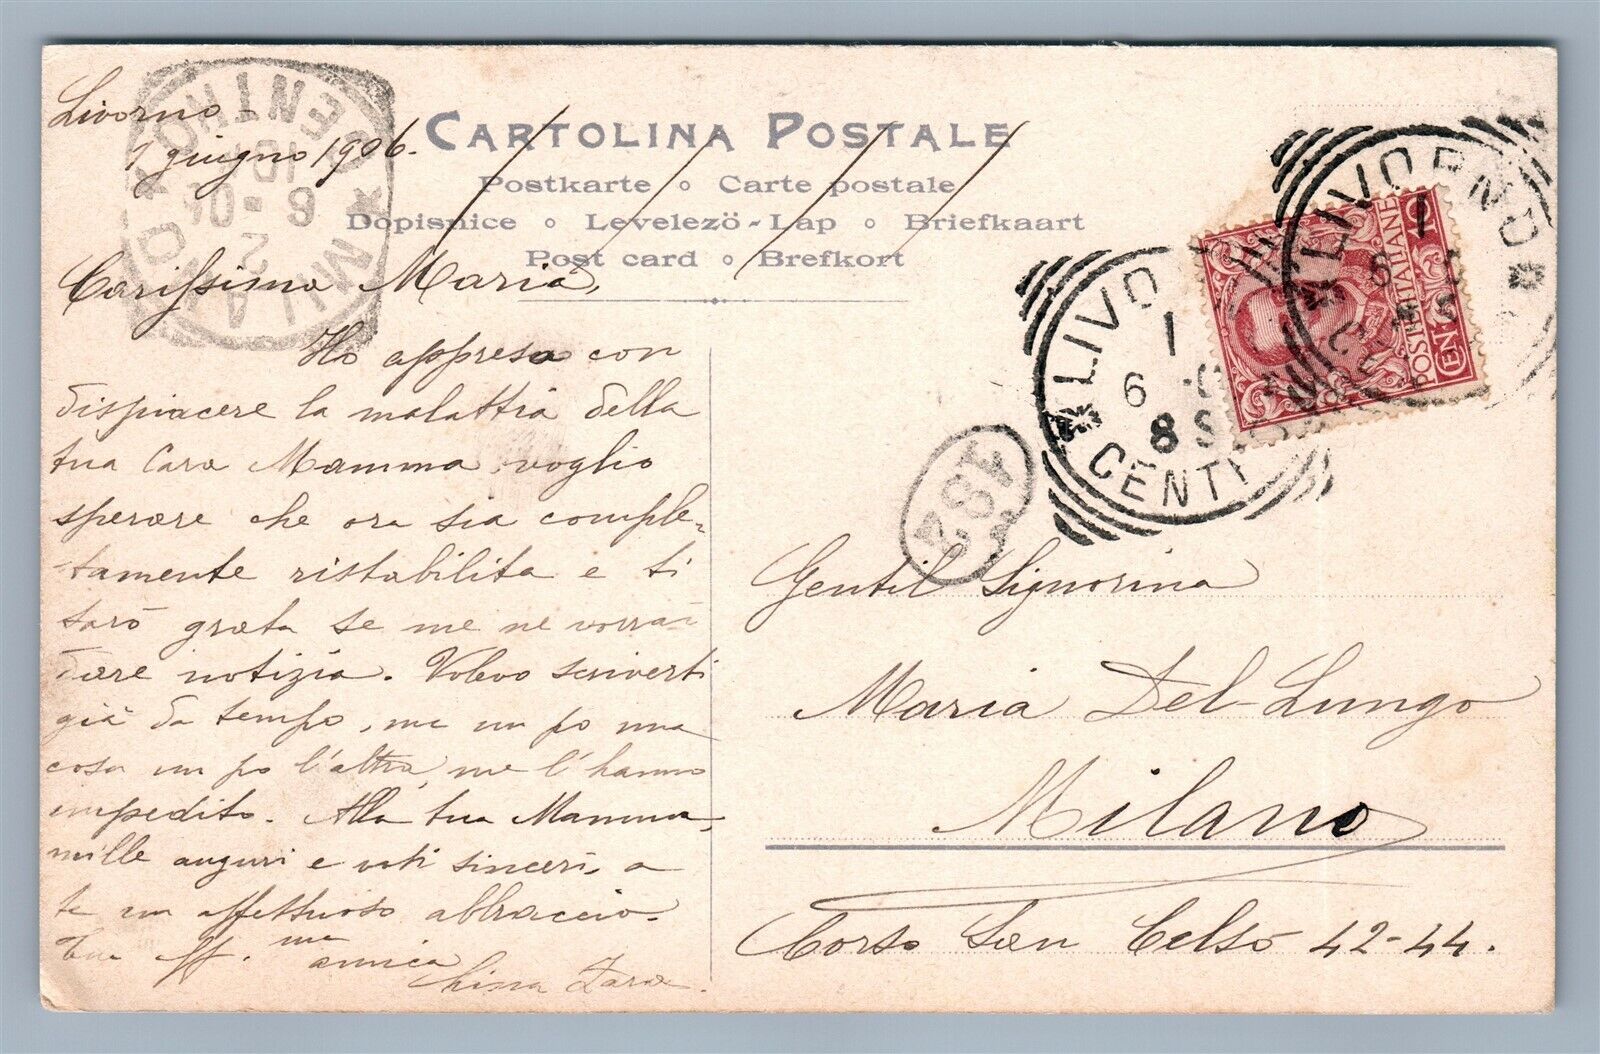 Livorno -
1 giugno 1906.
CARTOLINA POSTALE
Postkarte o Carte postale
Dopisnice o Levelezö-Lap o Briefkaart
Post card o Brefkort
Carissima Maria,
Ho appreso con
dispiacere la malattia della
tua Cara Mamma, voglio
sperare che ora sia comple=
tamente ristabilita e ti
sarò grata se me ne vorrai
dare notizia. Volevo scriverti
già da tempo, ma un po una
cosa un po l'altra, me l'hanno
impedito. Alla tua Mamma,
mille auguri e voti sinceri, a
te un affettuoso abbraccio.
Tua aff.ma amica
MILANO
CENTRO
10
6-06
2
LIVORNO
1
6
8S
CENTR
LIVORNO
1
6
POSTE ITALIANE
CENT. 10
182
Gentil Signorina
Maria Del-Lungo
Milano
Corso San Celso 42-44.